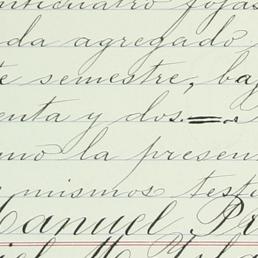 nticuatro fojas
da agregado,
te semestre, baj
enta y dos.=.
mo la presen
mismos testi
Manuel Pr
iel M.